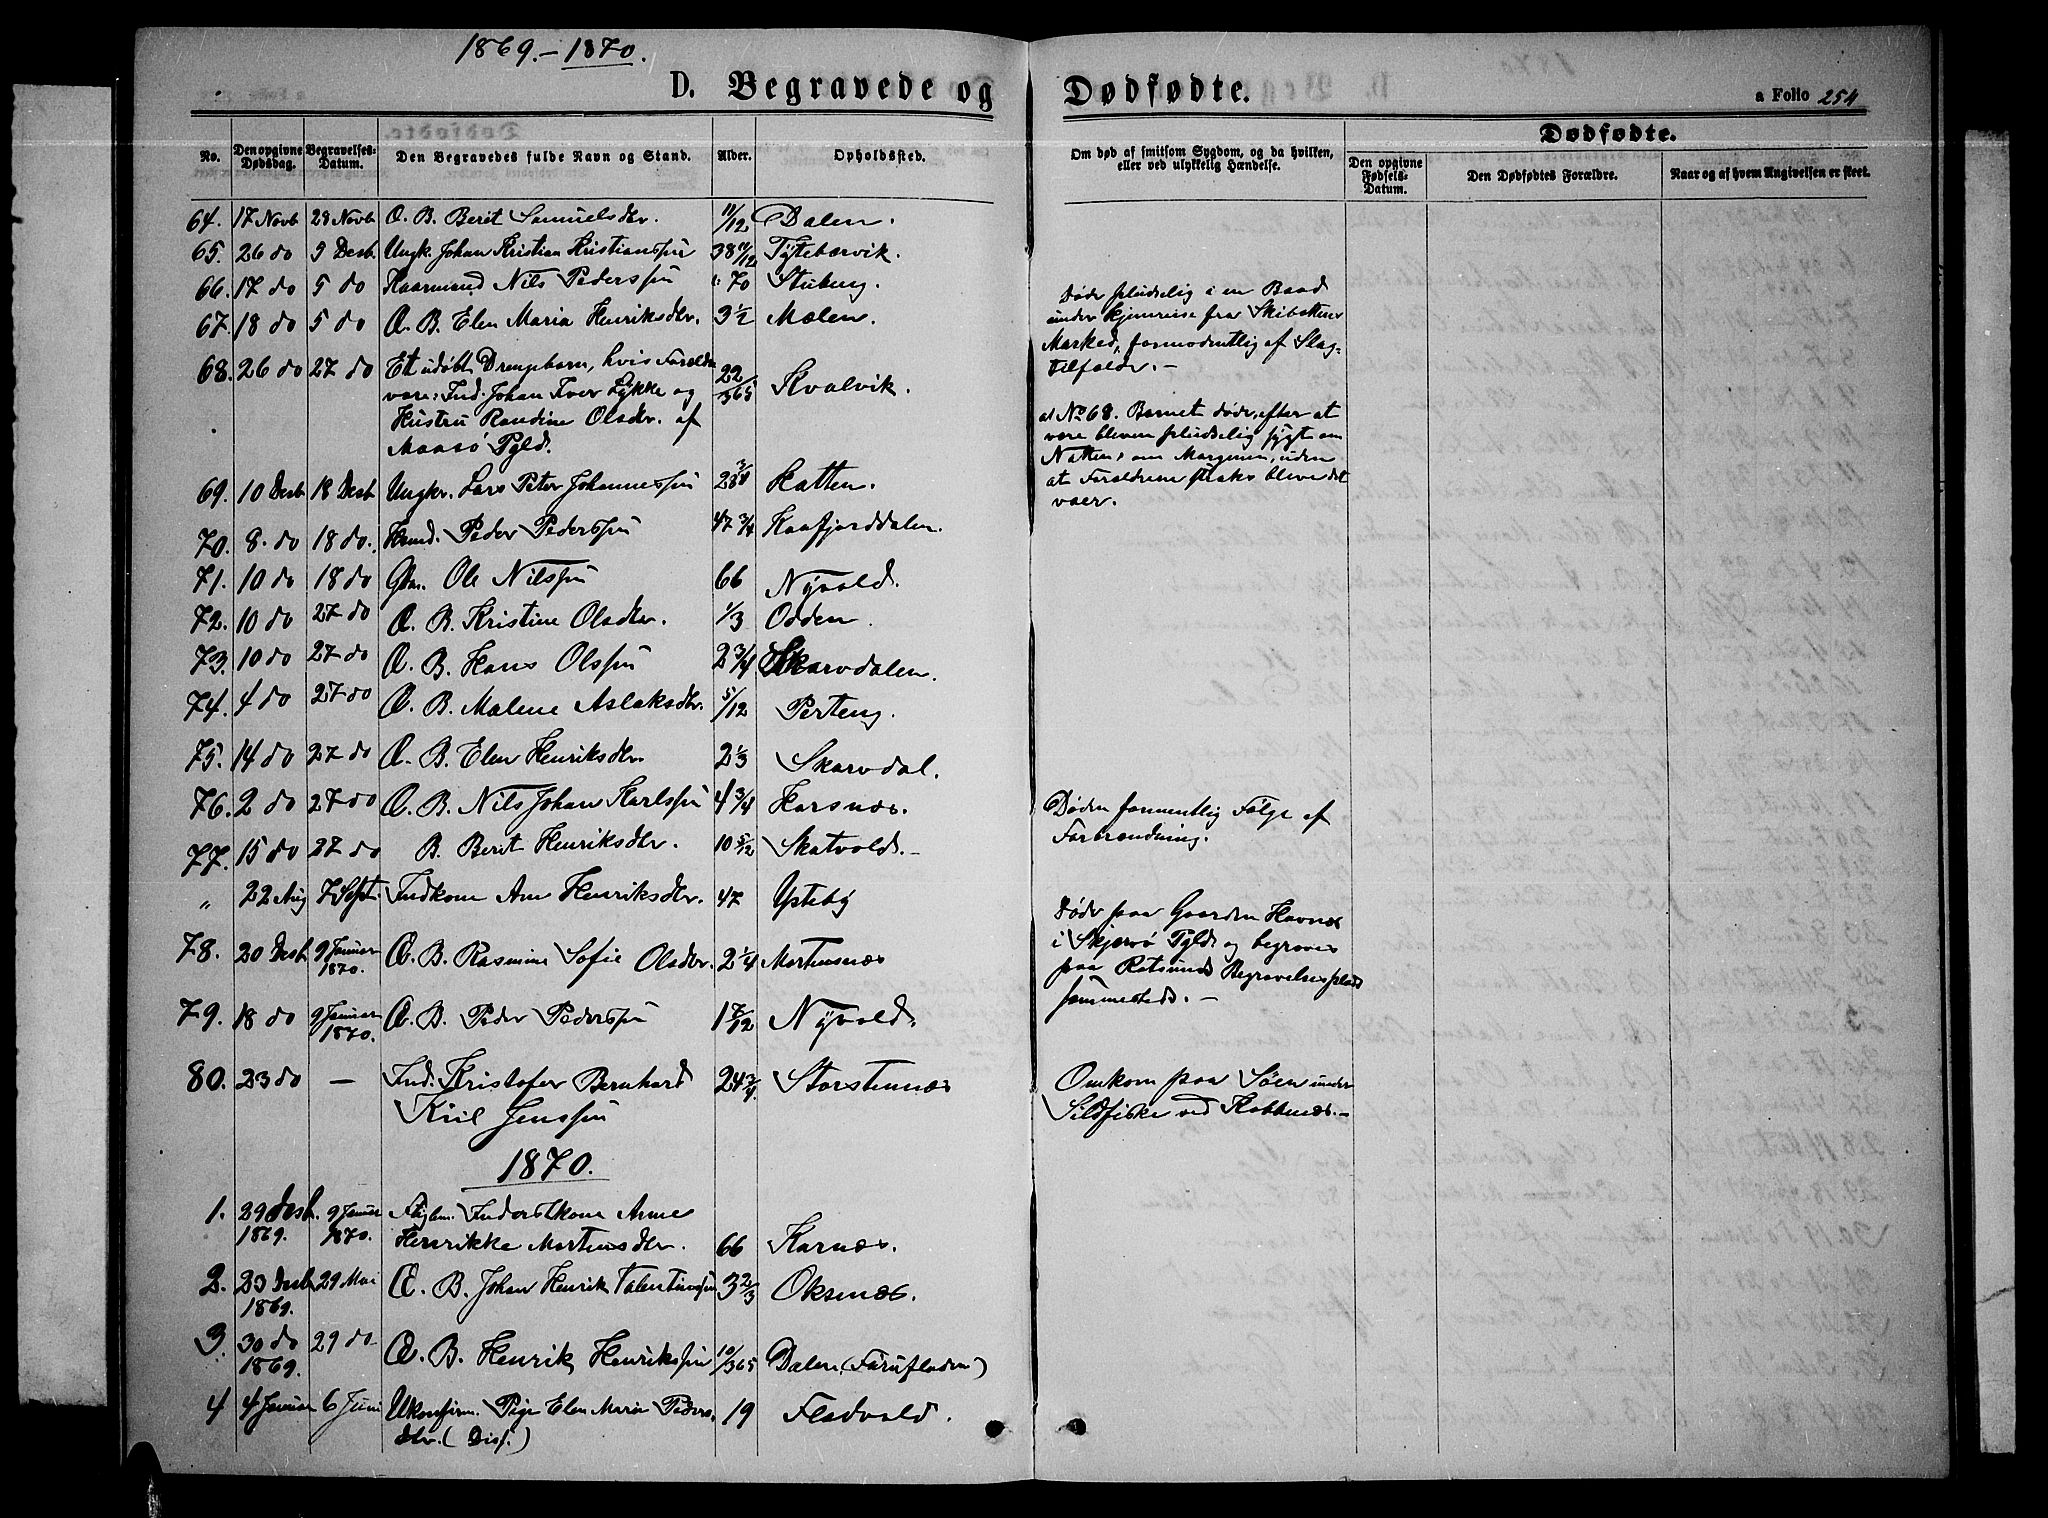 1869.-1870.
D. Begravede og Dødfødte.
a Folio 254
No. Den opgivne Dødsdag. Begravelses-Datum. Den Begravedes fulde Navn og Stand. Alder. Opholdssted. Om død af smitsom Sygdom, og da hvilken, eller ved ulykkelig Hændelse. Dødfødte. Den opgivne Fødsels-Datum. Den Dødfødtes Forældre. Naar og af hvem Angivelsen er skeet.
64. 17 Novb 29 Novb Æ. B. Berit Samuelsdtr. 11/12 Dalen.
65. 26 do 5 Desb Ungk. Johan Kristian Kristianssøn 38 11/12 Tyttebærvik.
66. 17 do 5 do Kaarmand Nils Pederssøn 70 Stubeng.
Døde pludselig i en Baad
under Hjemreise fra Skibotten
Marked, formodentlig af Slag-
tilfælde. -
67. 18 do 5 do Æ. B. Elen Maria Henriksdtr. 3 1/2 Mælen.
68. 26 do 27 do Et udøbt Drengebarn, hvis Forældre
vare: Ind. Johan Iver Lykke og
Hustru Randine Olsdtr. af
Maasø Pgld. 22/365 Skvalvik.
ad No 68. Barnet døde, efter at
være bleven pludselig sygt om
Natten, om Morgenen, uden
at Forældrene straks bleve det
vaer.
69. 10 Desb 18 Desb Ungkr. Lars Peter Johannessøn 28 3/4 Hatten.
70. 8. do 18 do. Hmd. Peder Pederssøn 47 3/4 Kaafjorddalen.
71. 10 do 18 do Gbr. Ole Nilssøn 66 Nyvold.
72. 10 do 27 do Æ. B. Kristine Olsdtr. 1/3 Odden.
73. 10 do 27 do Æ. B. Hans Olssøn 2 3/4 Skarvdalen.
74. 4 do 27 do Æ. B. Malene Aslaksdtr. 5/12 Perteng.
75. 14 do 27 do Æ. B. Elen Henriksdtr. 2 1/3 Skarvdal.
76. 2 do 27 do Æ. B. Nils Johan Karlssøn 4 3/4 Horsnæs.
Døden formentlig Følge af
Forbrænding.
77. 15 do 27 do B. Berit Henriksdtr. 10 5/12 Skatvold. -
" 22 Aug 7 Sept. Indkone Ane Henriksdtr. 47 Yteby
Døde paa Gaarden Havnæs
i Skjervø Pgld. og begraves
paa Rotsunds Begravelsesplads
sammesteds. -
78. 20 Desb 9 Januar 1870. Æ. B. Rasmine Sofie Olsdtr. 2 1/4 Mortensnæs
79. 18 do 9 Januar 1870. Æ. B. Peder Pederssøn 1 7/12 Nyvold.
80. 23 do - Ind. Kristofer Bernhard
Kiil Jenssøn 24 3/4 Storstennæs
Omkom paa Søen under
Sildfiske ved Kobbenæs. -
1870.
1. 29 Desb. 1869. 9 Januar 1870. Inderstkone Anne
Henrikke Mortensdtr. 66 Karnæs.
2. 23 Desb 1869. 29 Mai Æ. B. Johan Henrik Valentinssøn 3 2/3 Oksenæs.
3. 30 do 1869. 29 do Æ. B. Henrik Henrikssøn 10/365 Dalen (Furufladen)
4 4 Januar 6 Juni Ukonfirm. Pige Elen Maria Peders-
dtr. (Disf.) 19 Fladvold.